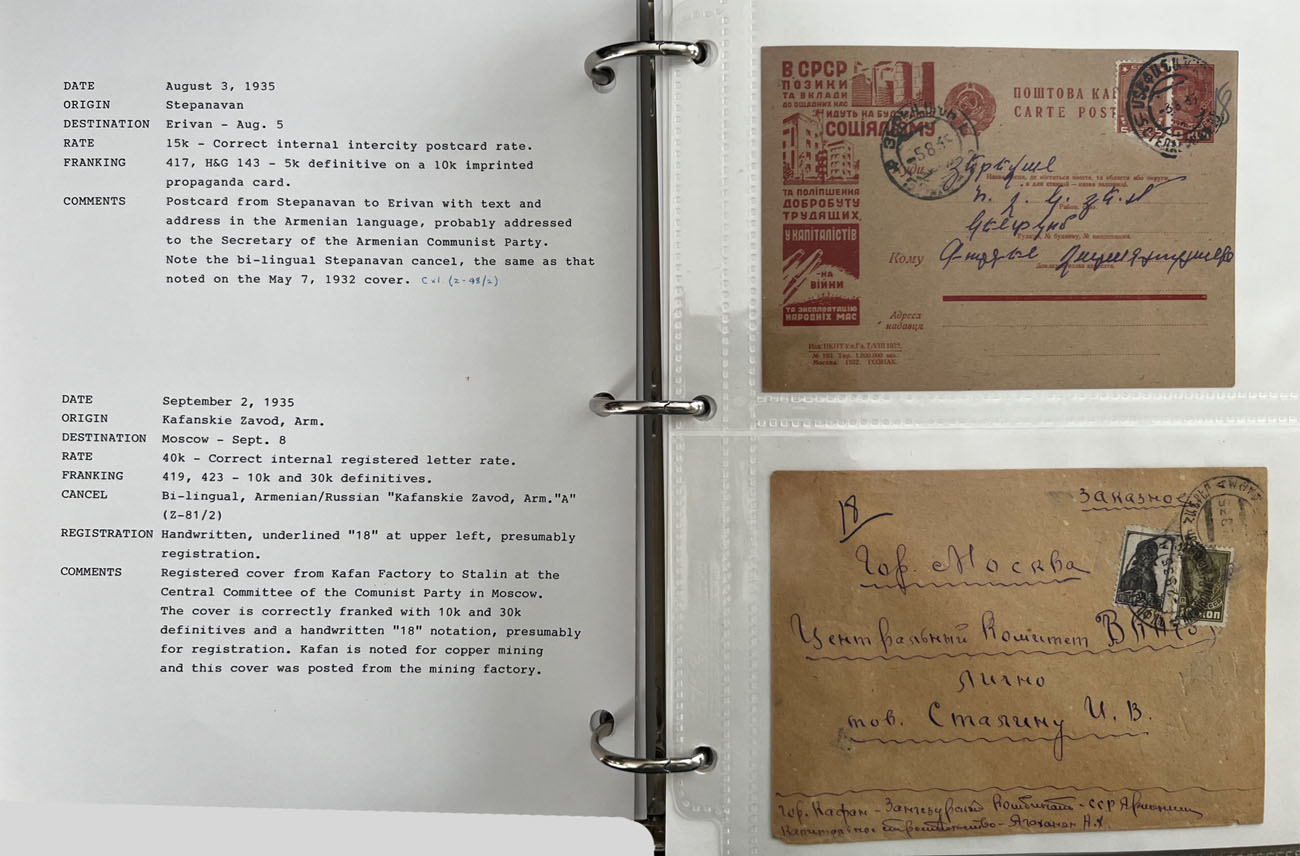 DATE August 3, 1935
ORIGIN Stepanavan
DESTINATION Erivan - Aug. 5
RATE 15k - Correct internal intercity postcard rate.
FRANKING 417, H&G 143 - 5k definitive on a 10k imprinted
propaganda card.
COMMENTS Postcard from Stepanavan to Erivan with text and
address in the Armenian language, probably addressed
to the Secretary of the Armenian Communist Party.
Note the bi-lingual Stepanavan cancel, the same as that
noted on the May 7, 1932 cover. (z-48/2)
DATE September 2, 1935
ORIGIN Kafanskie Zavod, Arm.
DESTINATION Moscow - Sept. 8
RATE 40k - Correct internal registered letter rate.
FRANKING 419, 423 - 10k and 30k definitives.
CANCEL Bi-lingual, Armenian/Russian "Kafanskie Zavod, Arm."A"
(Z-81/2)
REGISTRATION Handwritten, underlined "18" at upper left, presumably
registration.
COMMENTS Registered cover from Kafan Factory to Stalin at the
Central Committee of the Comunist Party in Moscow.
The cover is correctly franked with 10k and 30k
definitives and a handwritten "18" notation, presumably
for registration. Kafan is noted for copper mining
and this cover was posted from the mining factory.
В СРСР
ПОЗИКИ
ТА ВКЛАДИ
ДО ОЩАДНИХ КАС
ЙДУТЬ НА
СОЦІЯЛІЗМУ
ТА ПОЛІПШЕННЯ
ДОБРОБУТУ
ТРУДЯЩИХ,
У КАПІТАЛІСТІВ
-НА
ВІЙНИ
ТА ЭКСПЛОАТАЦІЮ
НАРОДНІХ МАС
ПОШТОВА
CARTE POST
-5.8.35
Кому
Адреса
надавця
Москва. 1932. ГОЗНАК.
18
Заказное
Гор. Москва
Центральный Комитет
Лично
тов. Сталину И. В.
КОП
Гор. Кафан - Зангезурский Комбинат - ССР Армении
Капитальное строительство - А.Х.